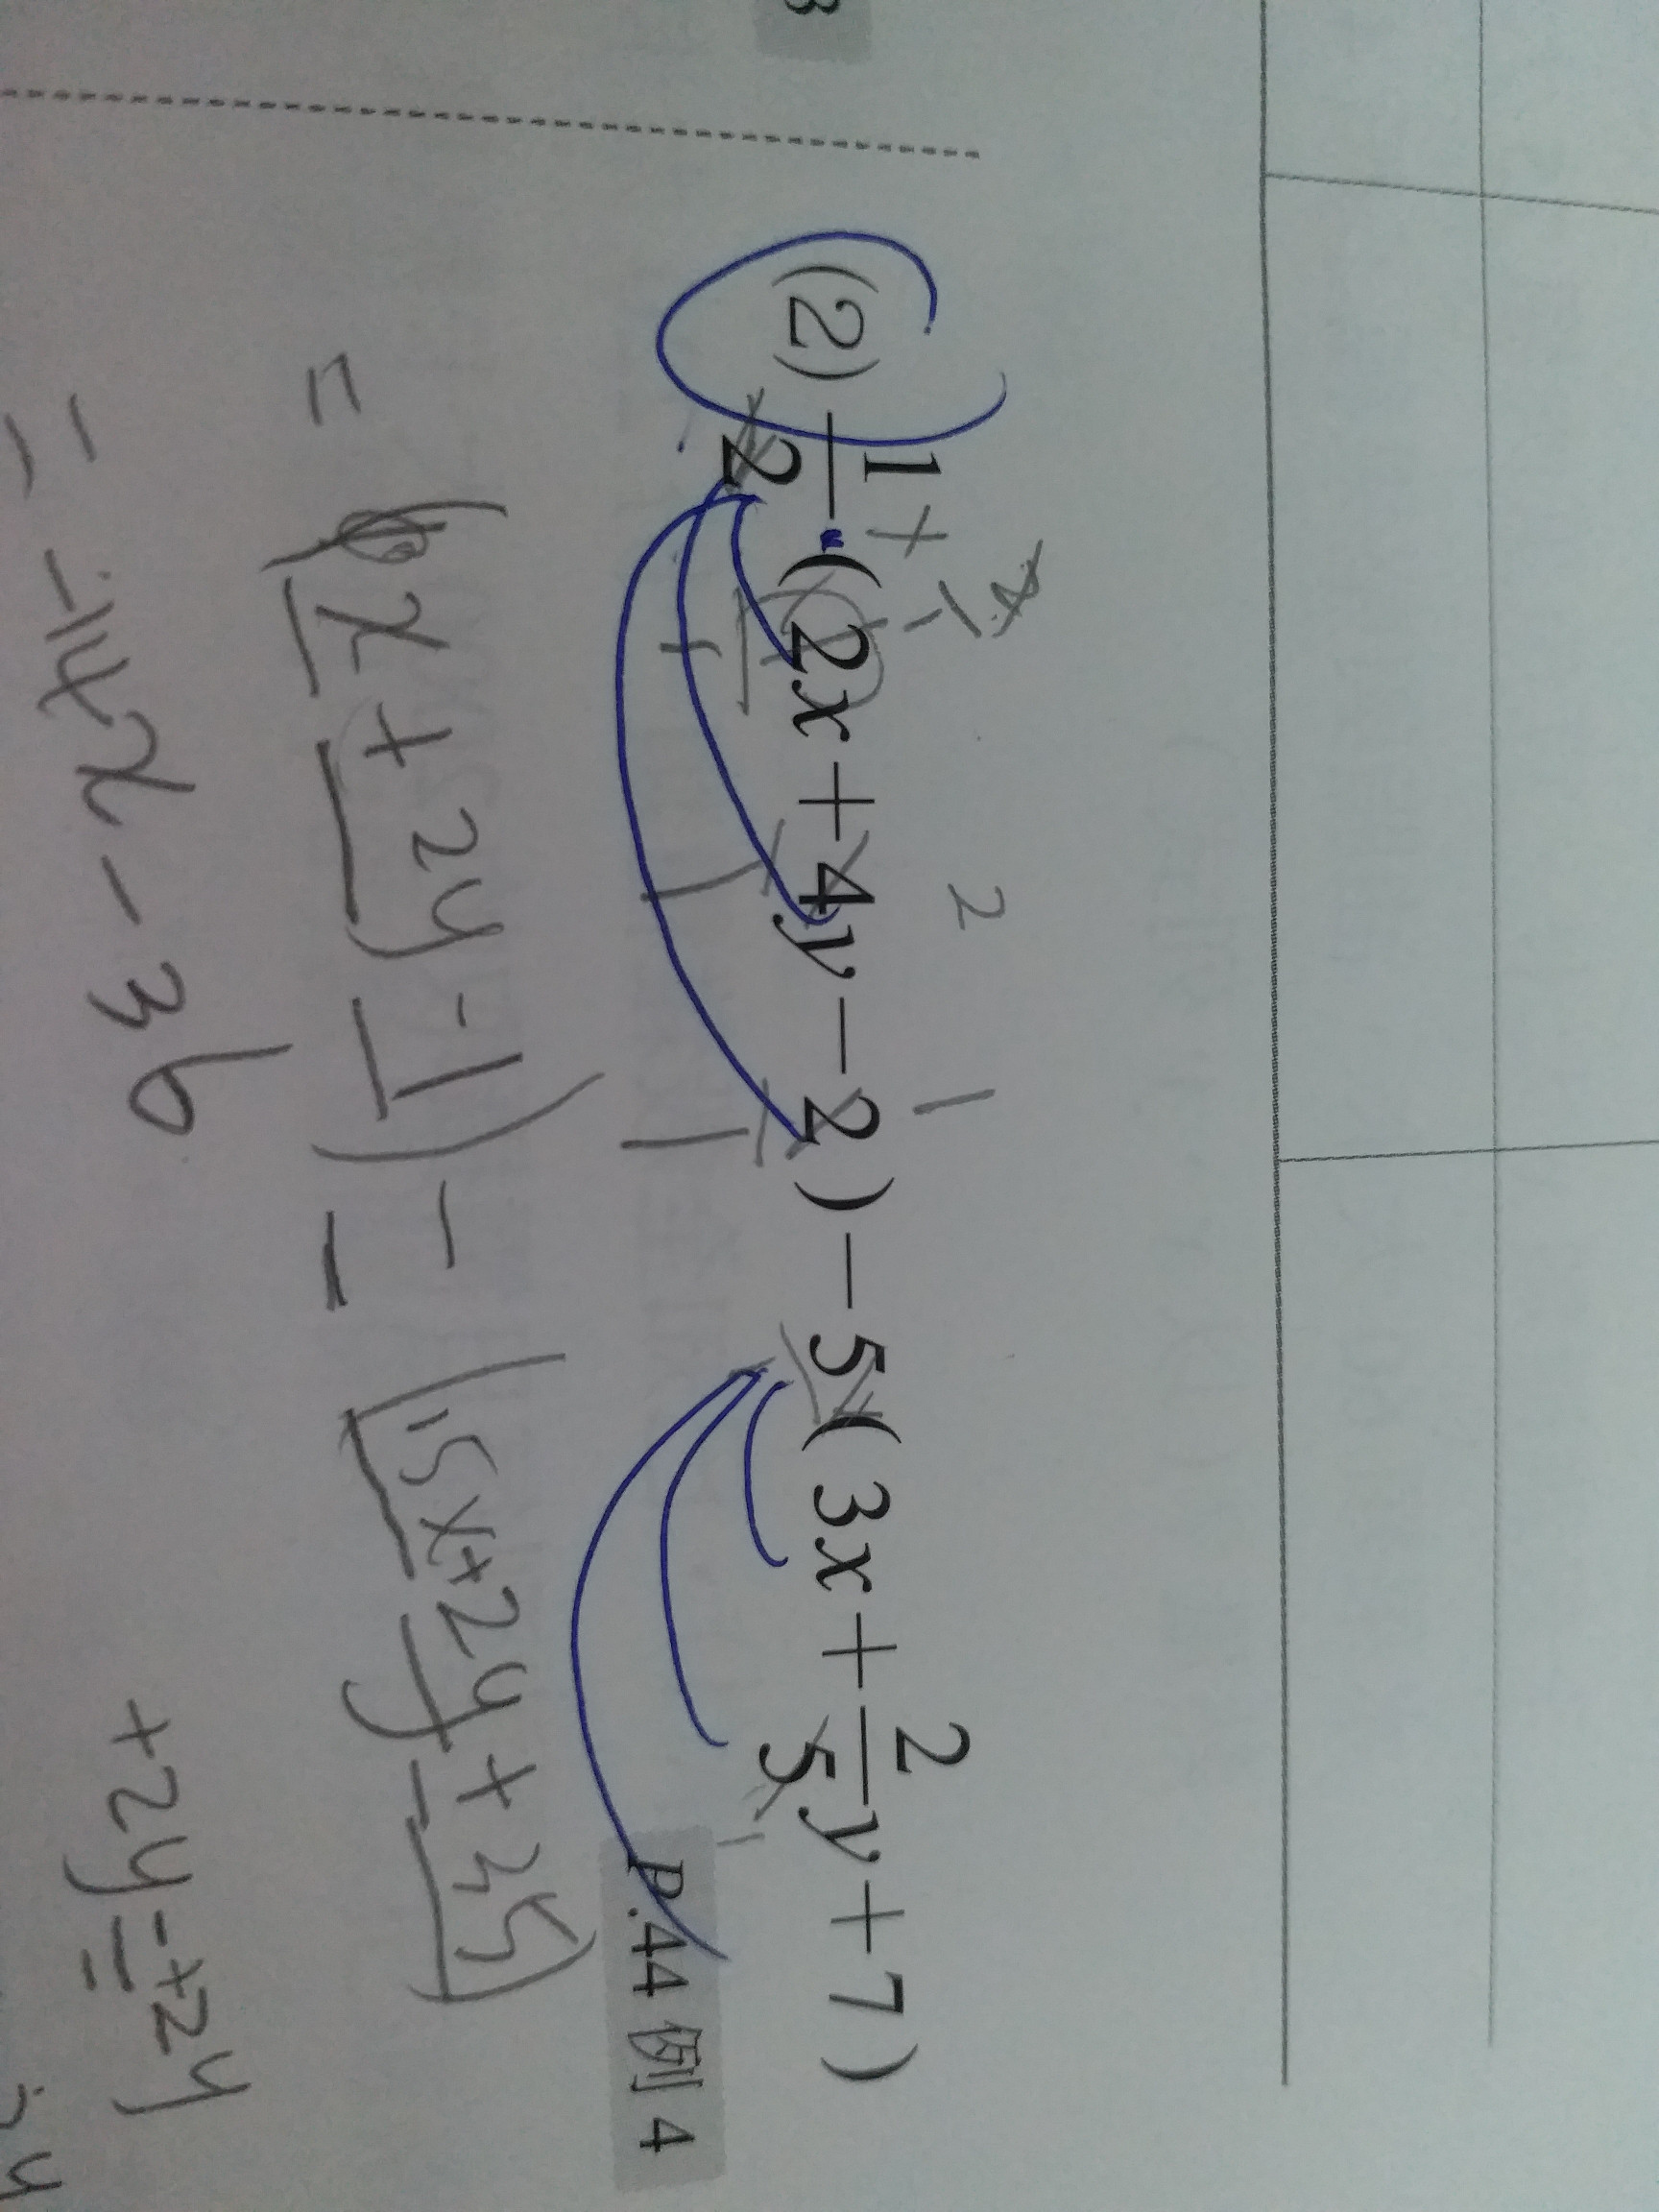 3
(2) 1/2 (2x+4y-2)-5(3x+2/5y+7)
P.44 例 4
= (x+2y-1)-(15x+2y+35)
= -14x-36
+2y-+2y